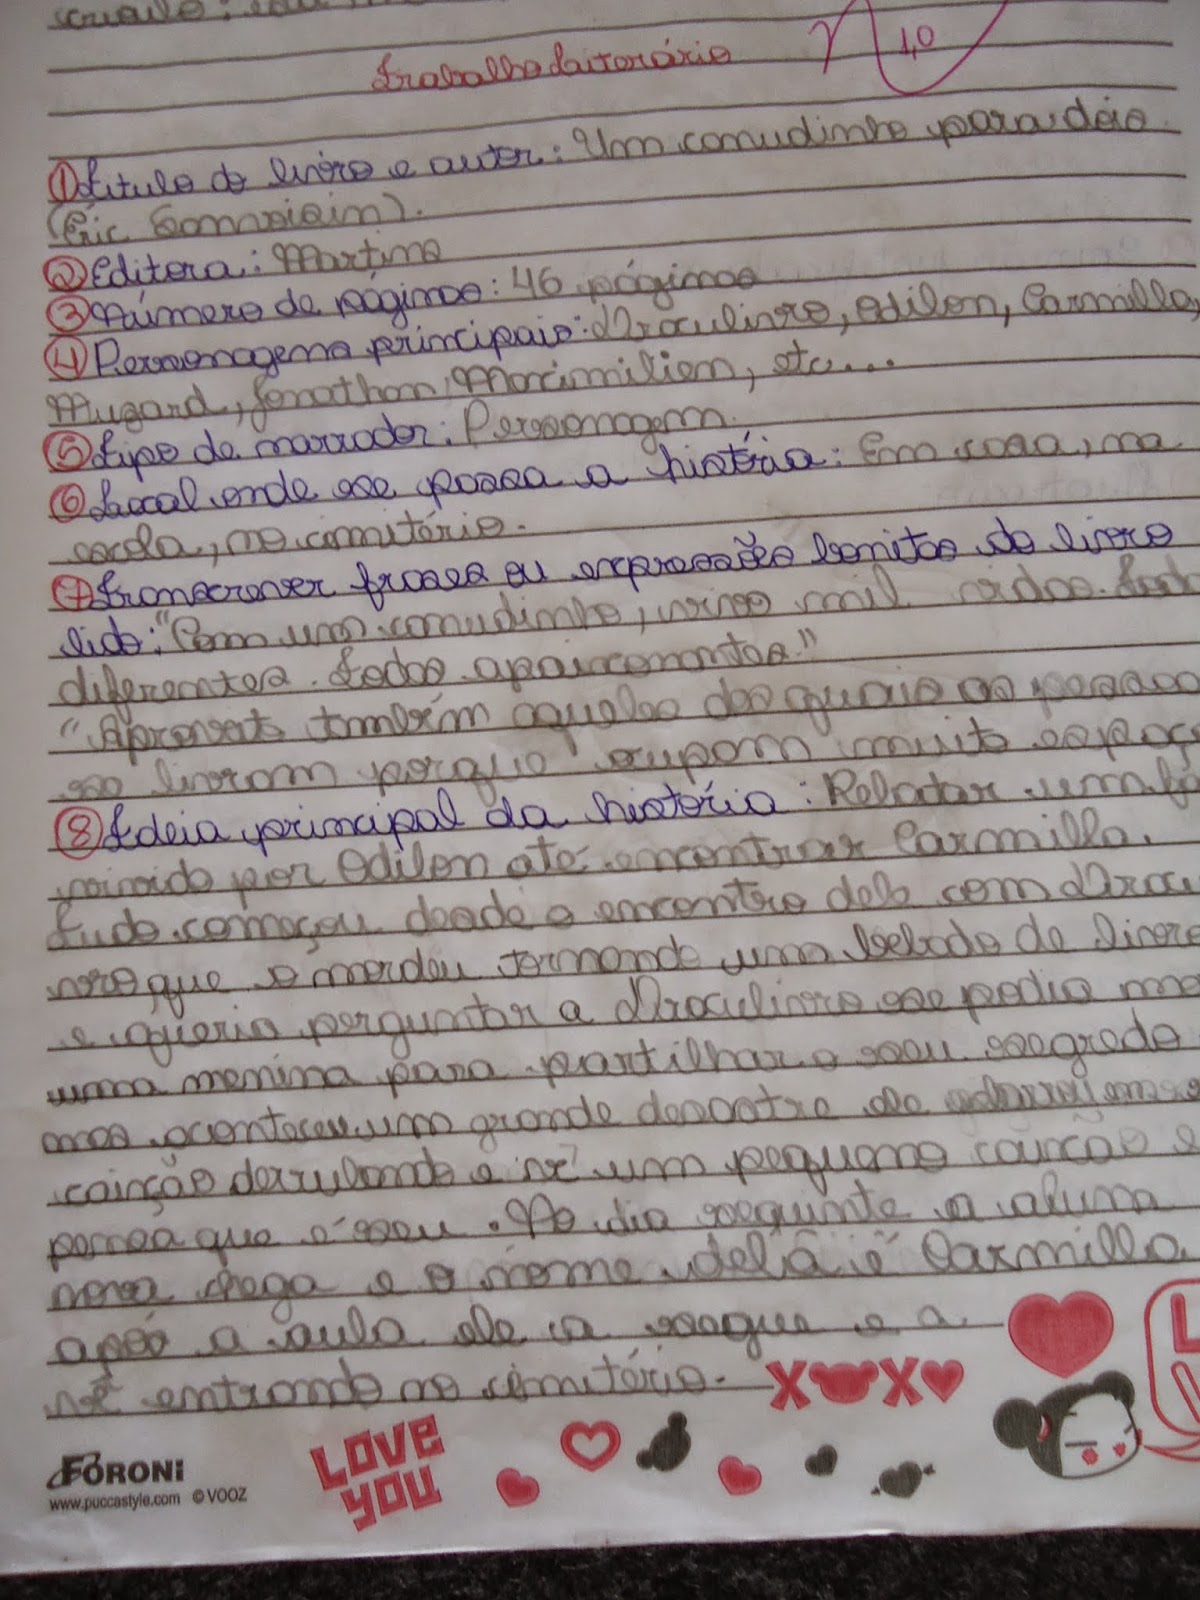 Trabalho Literário
1,0
① Título do livro e autor: Um canudinho para dois
(Éric Sanvoisin).
② Editora: Martins
③ Número de páginas: 46 páginas
④ Personagens principais: Draculivro, Odilon, Carmilla,
Mugard, Jonathan, Marximilien, etc...
⑤ Tipo de narrador: Personagem.
⑥ Local onde se passa a história: Em casa, na
escola, no cimitério.
⑦ Transcrever frases ou expressões bonitas do livro
lido: "Com um canudinho, vivo mil vidas. Todas
diferentes. Todas apaixonantes."
"Aproveito também aqueles dos quais as pessoas
se livram porque ocupam muito espaço
⑧ Ideia principal da história: Relatar um
por Odilon até encontrar Carmilla.
Tudo começou desde o encontro dele com Dracu
que o mordeu tornando um bebedo de livro
e queria perguntar a Draculivro se podia
uma menina para partilhar o seu segredo
mas aconteceu um grande desastre ele
caixão derrubando e vê um pequeno caixão e
pensa que é seu. No dia seguinte a aluna
nova chega e o nome dela é Carmilla
após a aula ele a segue e a
vê entrando no cimitério.
XOXO
LOVE
YOU
FORONI
www.puccastyle.com © VOOZ